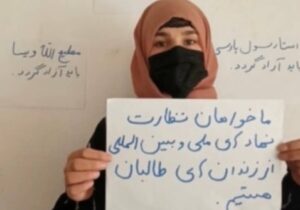 استاد رسول پارسی
باید آزاد گردد.
مطیع الله ویسا
باید آزاد گردد.
ما خواهان نظارت
نهادهای ملی و بین المللی
از زندان های طالبان
هستیم.